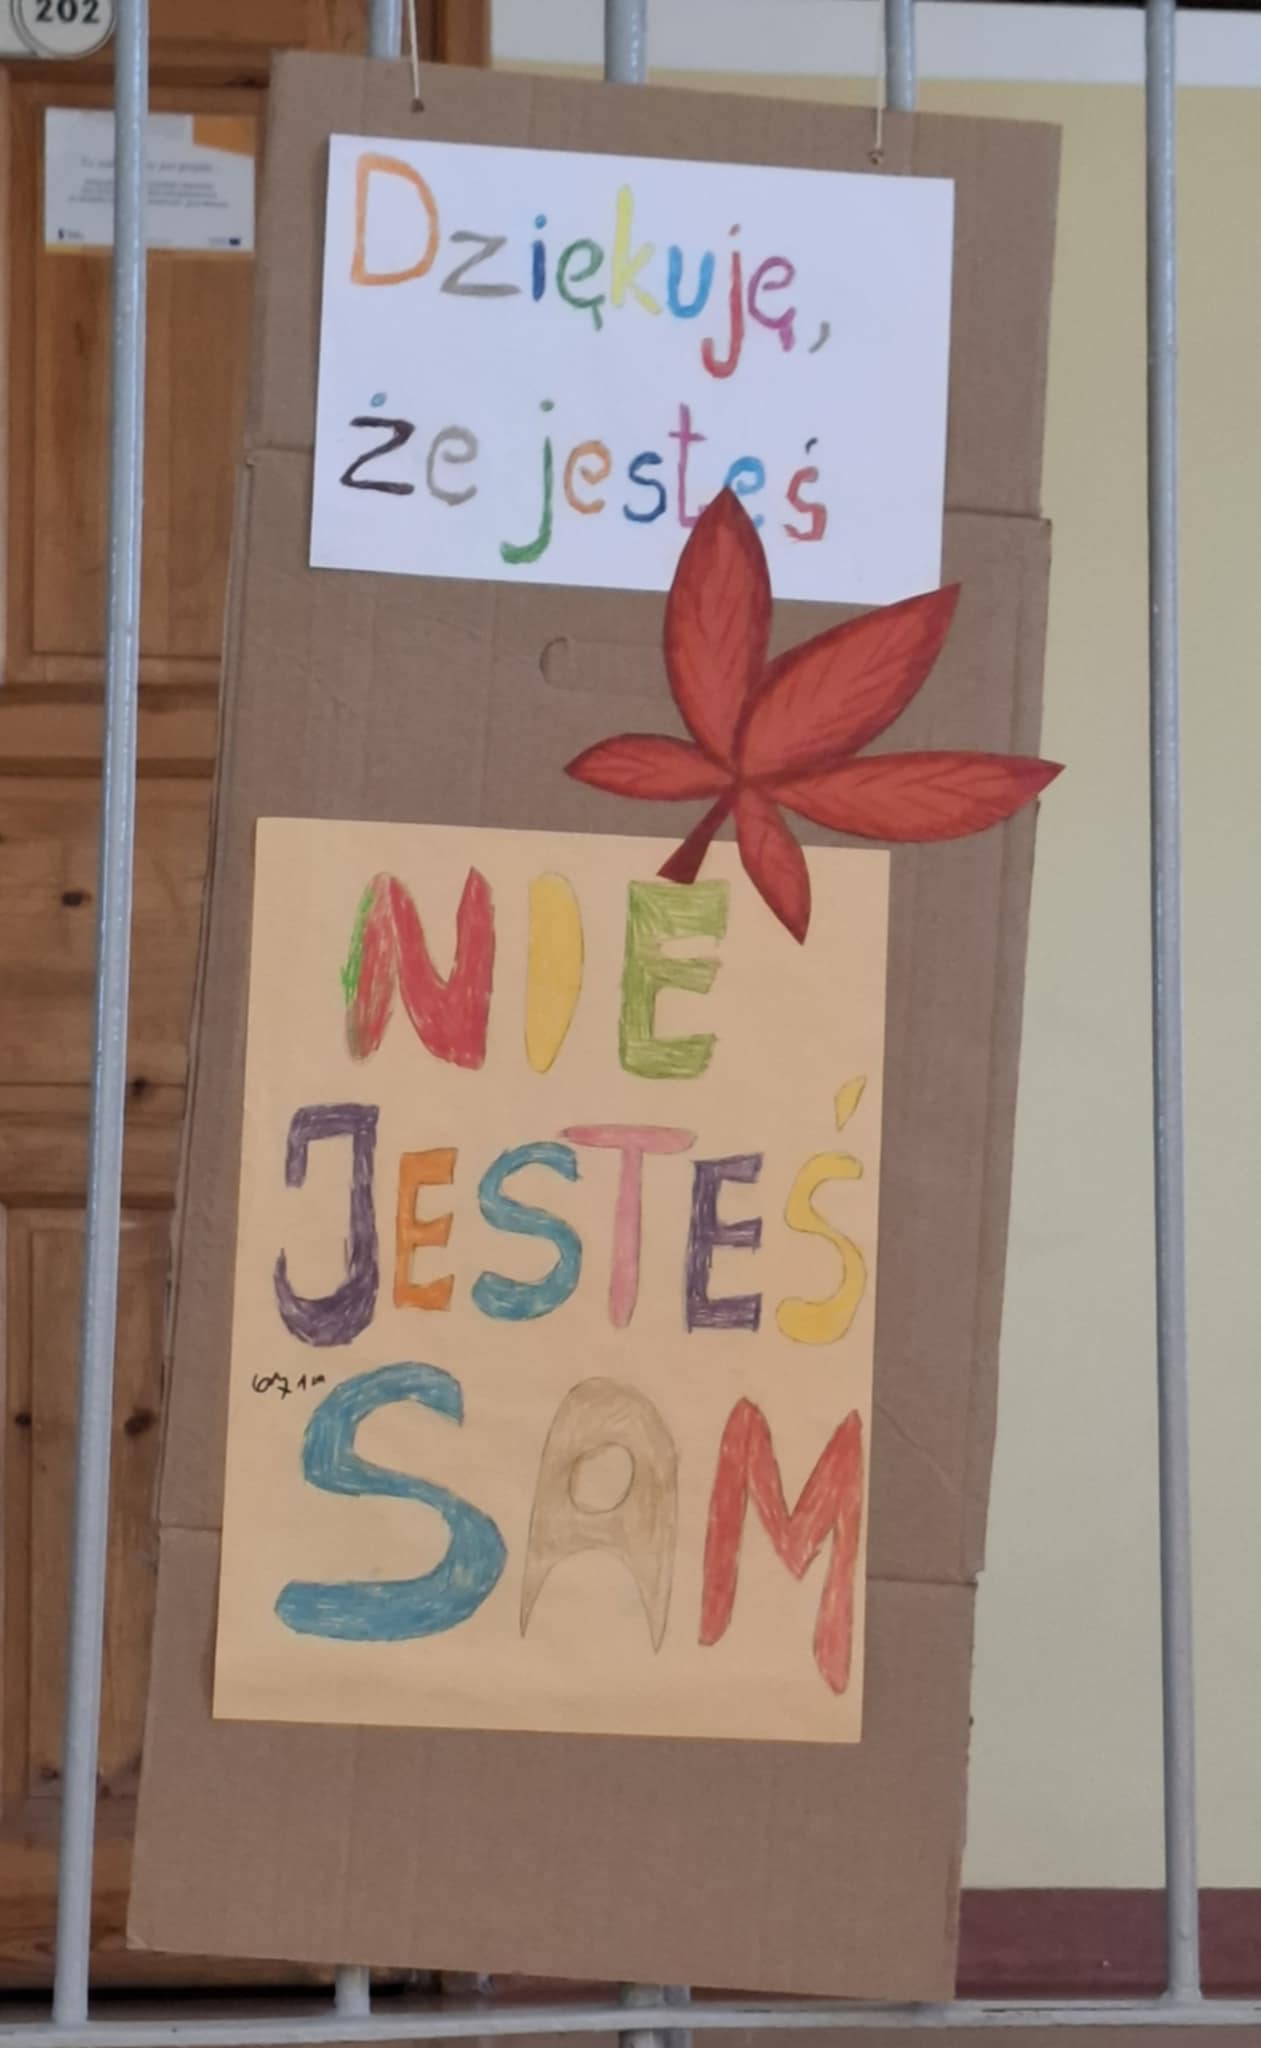 202
Dziękuję,
że jesteś
NIE
JESTEŚ
SAM